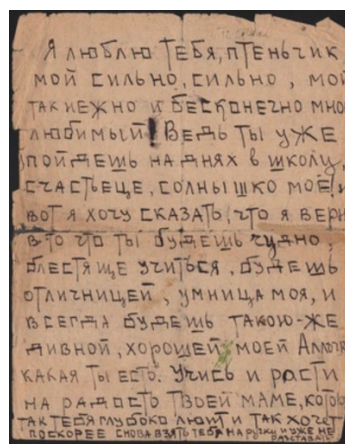 Я люблю тебя, птеньчик
мой сильно, сильно, мой
так нежно и бесконечно мно
любимый! Ведь ты уже
пойдешь на днях в школу,
счастьеце, солнышко моё!
вот я хочу сказать, что я верю
в то что ты будешь чудно,
блестяще учиться, будешь
отличницей, умница моя, и
всегда будешь такою-же
дивной, хорошей моей
какая ты есть. Учись и расти
на радость твоей маме, котор
так тебя глубоко любит и так хочет
поскорее снова взять тебя на ручки и уже не
расставать